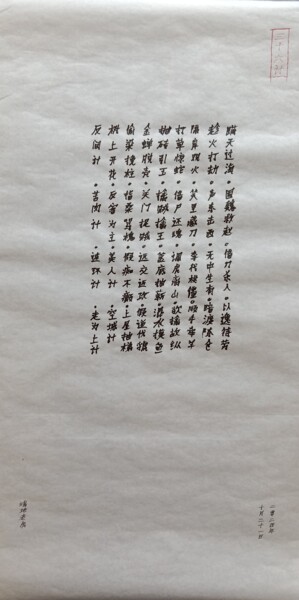 三十六计
瞒天过海·围魏救赵·借刀杀人·以逸待劳
趁火打劫·声东击西·无中生有·暗渡陈仓
隔岸观火·笑里藏刀·李代桃僵·顺手牵羊
打草惊蛇·借尸还魂·调虎离山·欲擒故纵
抛砖引玉·擒贼擒王·釜底抽薪·混水摸鱼
金蝉脱壳·关门捉贼·远交近攻·假途伐虢
偷梁换柱·指桑骂槐·假痴不癫·上屋抽梯
树上开花·反客为主·美人计·空城计
反间计·苦肉计·连环计·走为上计
二零二四年
十月二十一日